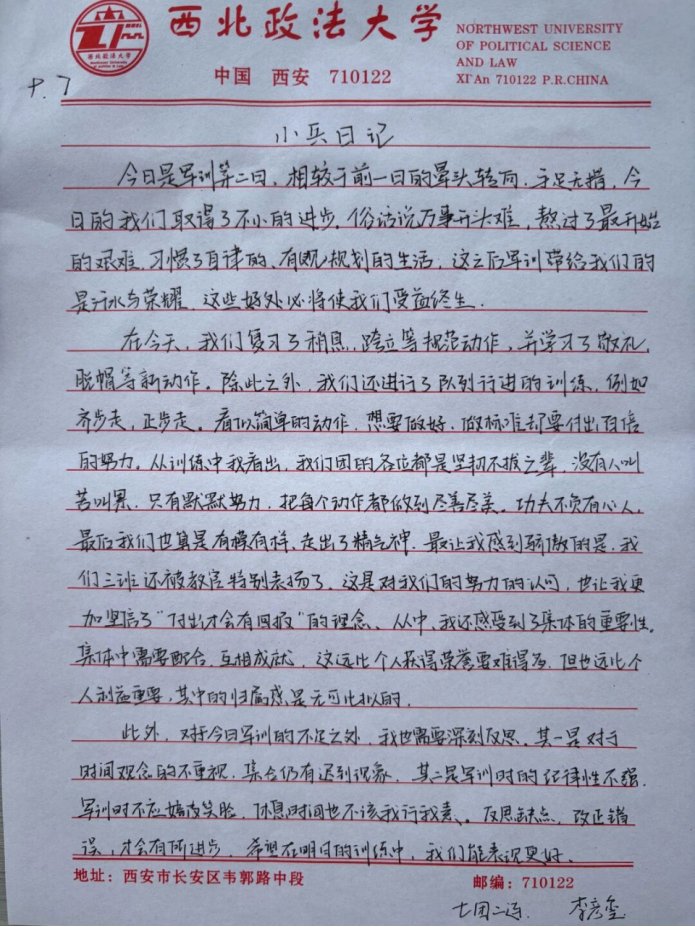 西北政法大学
NORTHWEST UNIVERSITY
OF POLITICAL SCIENCE
AND LAW
中国 西安 710122
XI'An 710122 P.R.CHINA
P.7
小兵日记
今日是军训第二日，相较于前一日的晕头转向、手足无措，今
日的我们取得了不小的进步。俗话说万事开头难，熬过了最开始
的艰难，习惯了自律的、有规划的生活，这之后军训带给我们的
是汗水与荣耀，这些好处必将使我们受益终生。
在今天，我们复习了稍息，跨立等规范动作，并学习了敬礼，
脱帽等新动作。除此之外，我们还进行了队列行进的训练，例如
齐步走，正步走。看似简单的动作，想要做好，做标准却要付出百倍
的努力。从训练中我看出，我们团的各位都是坚韧不拔之辈，没有人叫
苦叫累，只有默默努力，把每个动作都做到尽善尽美。功夫不负有心人，
最后我们也算是有模有样，走出了精气神。最让我感到骄傲的是，我
们三班还被教官特别表扬了，这是对我们的努力的认可，也让我更
加坚信了“付出才会有回报”的理念、从中，我还感受到了集体的重要性。
集体中需要配合，互相成就，这远比个人获得荣誉要难得多，但也远比个
人利益重要，其中的归属感是无可比拟的。
此外，对于今日军训的不足之处，我也需要深刻反思。其一是对于
时间观念的不重视，集合仍有迟到现象，其二是军训时的纪律性不强，
军训时不应嬉皮笑脸，休息时间也不该我行我素、。反思缺点，改正错
误，才会有所进步，希望在明日的训练中，我们能表现更好。
地址：西安市长安区韦郭路中段 邮编：710122
七团二连 李彦玺